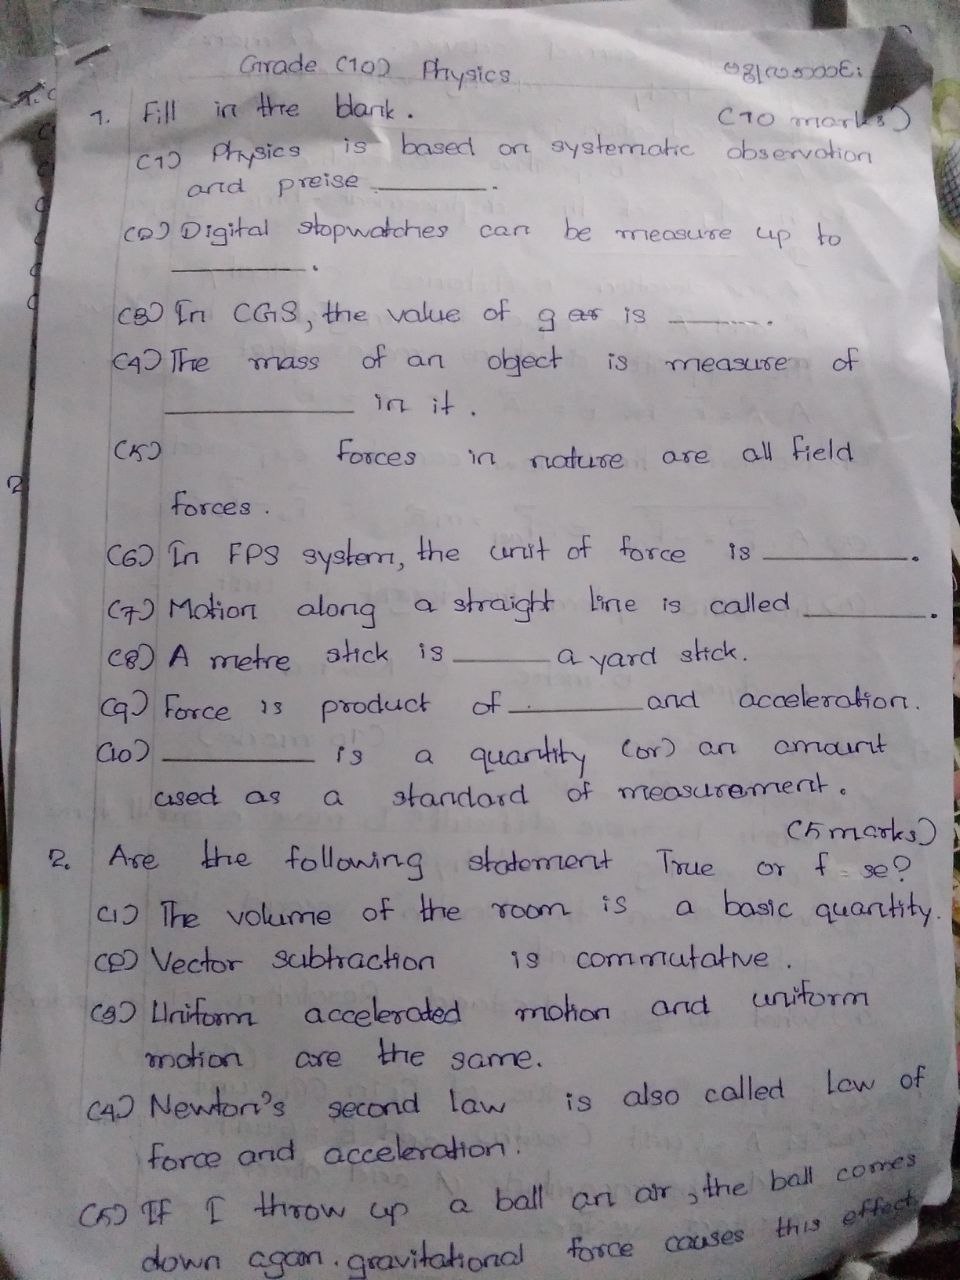 Grade (10) Physics
1. Fill in the blank. (10 marks)
(1) Physics is based on systematic observation
and preise ________.
(2) Digital stopwatches can be measure up to
________.
(3) In CGS, the value of g is ________.
(4) The mass of an object is measure of
________ in it.
(5) forces in nature are all field
forces.
(6) In FPS system, the unit of force is ________.
(7) Motion along a straight line is called ________.
(8) A metre stick is ________ a yard stick.
(9) Force is product of ________ and acceleration.
(10) ________ is a quantity (or) an amount
used as a standard of measurement.
(5 marks)
2. Are the following statement True or f se?
(1) The volume of the room is a basic quantity.
(2) Vector subtraction is commutative.
(3) Uniform accelerated motion and uniform
motion are the same.
(4) Newton's second law is also called law of
force and acceleration.
(5) If I throw up a ball an air, the ball comes
down again. gravitational force causes this effect